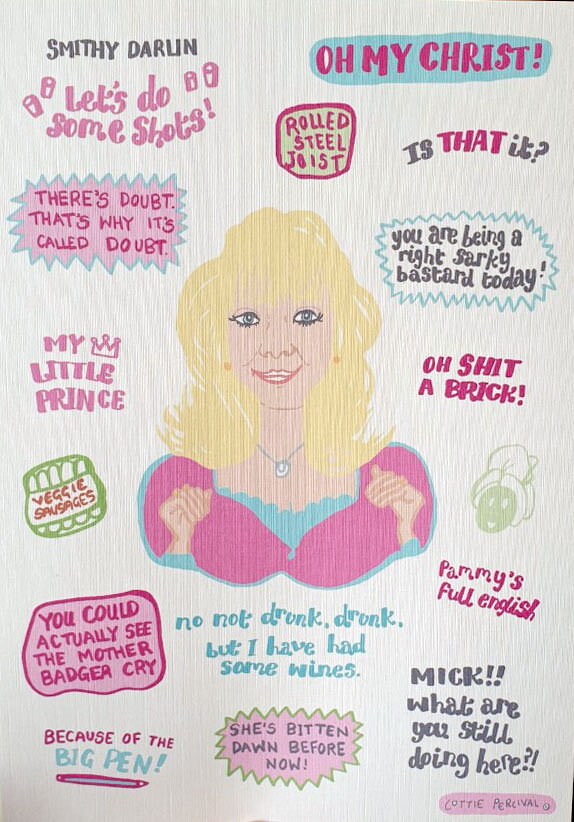 SMITHY DARLIN
Let's do
some shots!
OH MY CHRIST!
ROLLED
STEEL
JOIST
IS THAT it?
THERE'S DOUBT.
THAT'S WHY IT'S
CALLED DOUBT.
you are being a
right sarky
bastard today!
MY
LITTLE
PRINCE
OH SHIT
A BRICK!
VEGGIE
SAUSAGES
Pammy's
full english
YOU COULD
ACTUALLY SEE
THE MOTHER
BADGER CRY
no not dronk, dronk,
but I have had
some wines.
MICK!!
what are
you still
doing here?!
BECAUSE OF THE
BIG PEN!
SHE'S BITTEN
DAWN BEFORE
NOW!
LOTTIE PERCIVAL